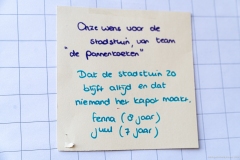 Onze wens voor de
stadstuin, van team
"de pannenkoeken"
Dat de stadstuin zo
blijft altijd en dat
niemand het kapot maakt.
fenna (8 jaar)
juul (7 jaar)